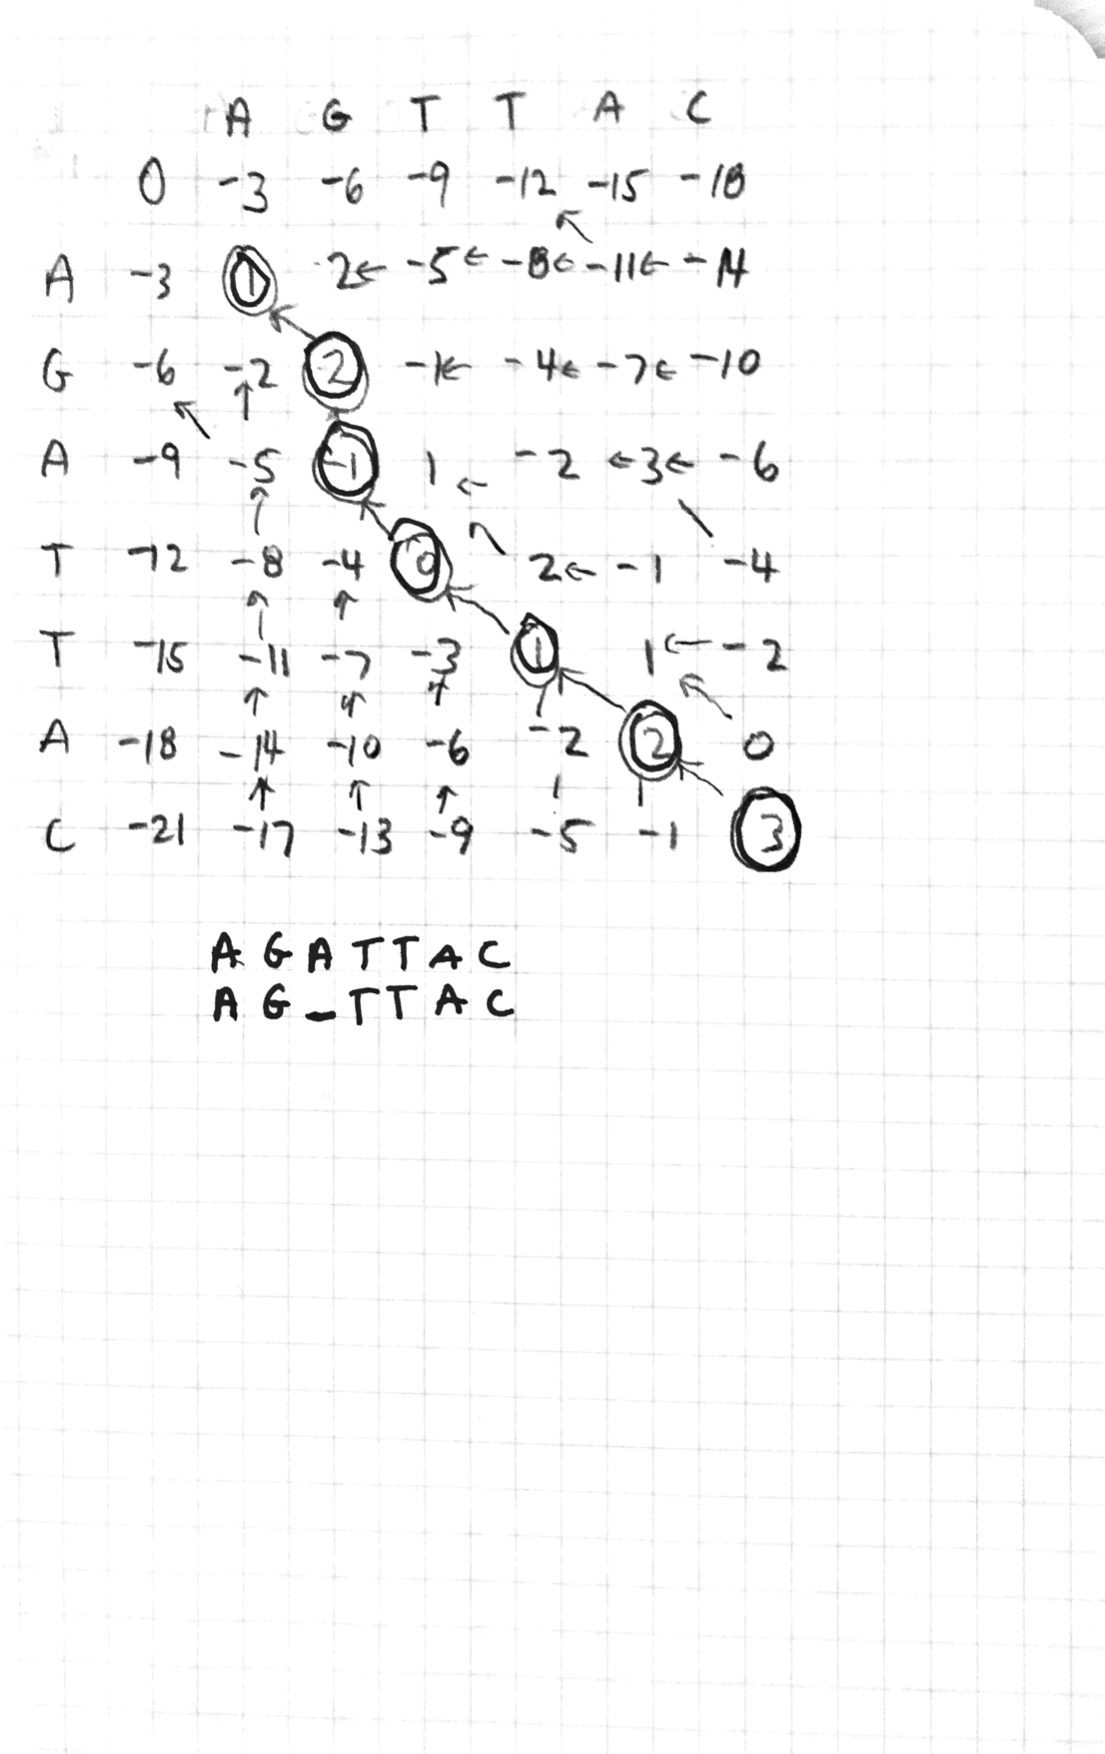 A G T T A C
0 -3 -6 -9 -12 -15 -18
A -3 1 -2 ← -5 ← -8 ← -11 ← -14
G -6 -2 2 -1 ← -4 ← -7 ← -10
A -9 -5 -1 1 ← -2 ← 3 ← -6
T -12 -8 -4 0 2 ← -1 -4
T -15 -11 -7 -3 1 1 ← -2
A -18 -14 -10 -6 -2 2 0
C -21 -17 -13 -9 -5 -1 3
A G A T T A C
A G _ T T A C